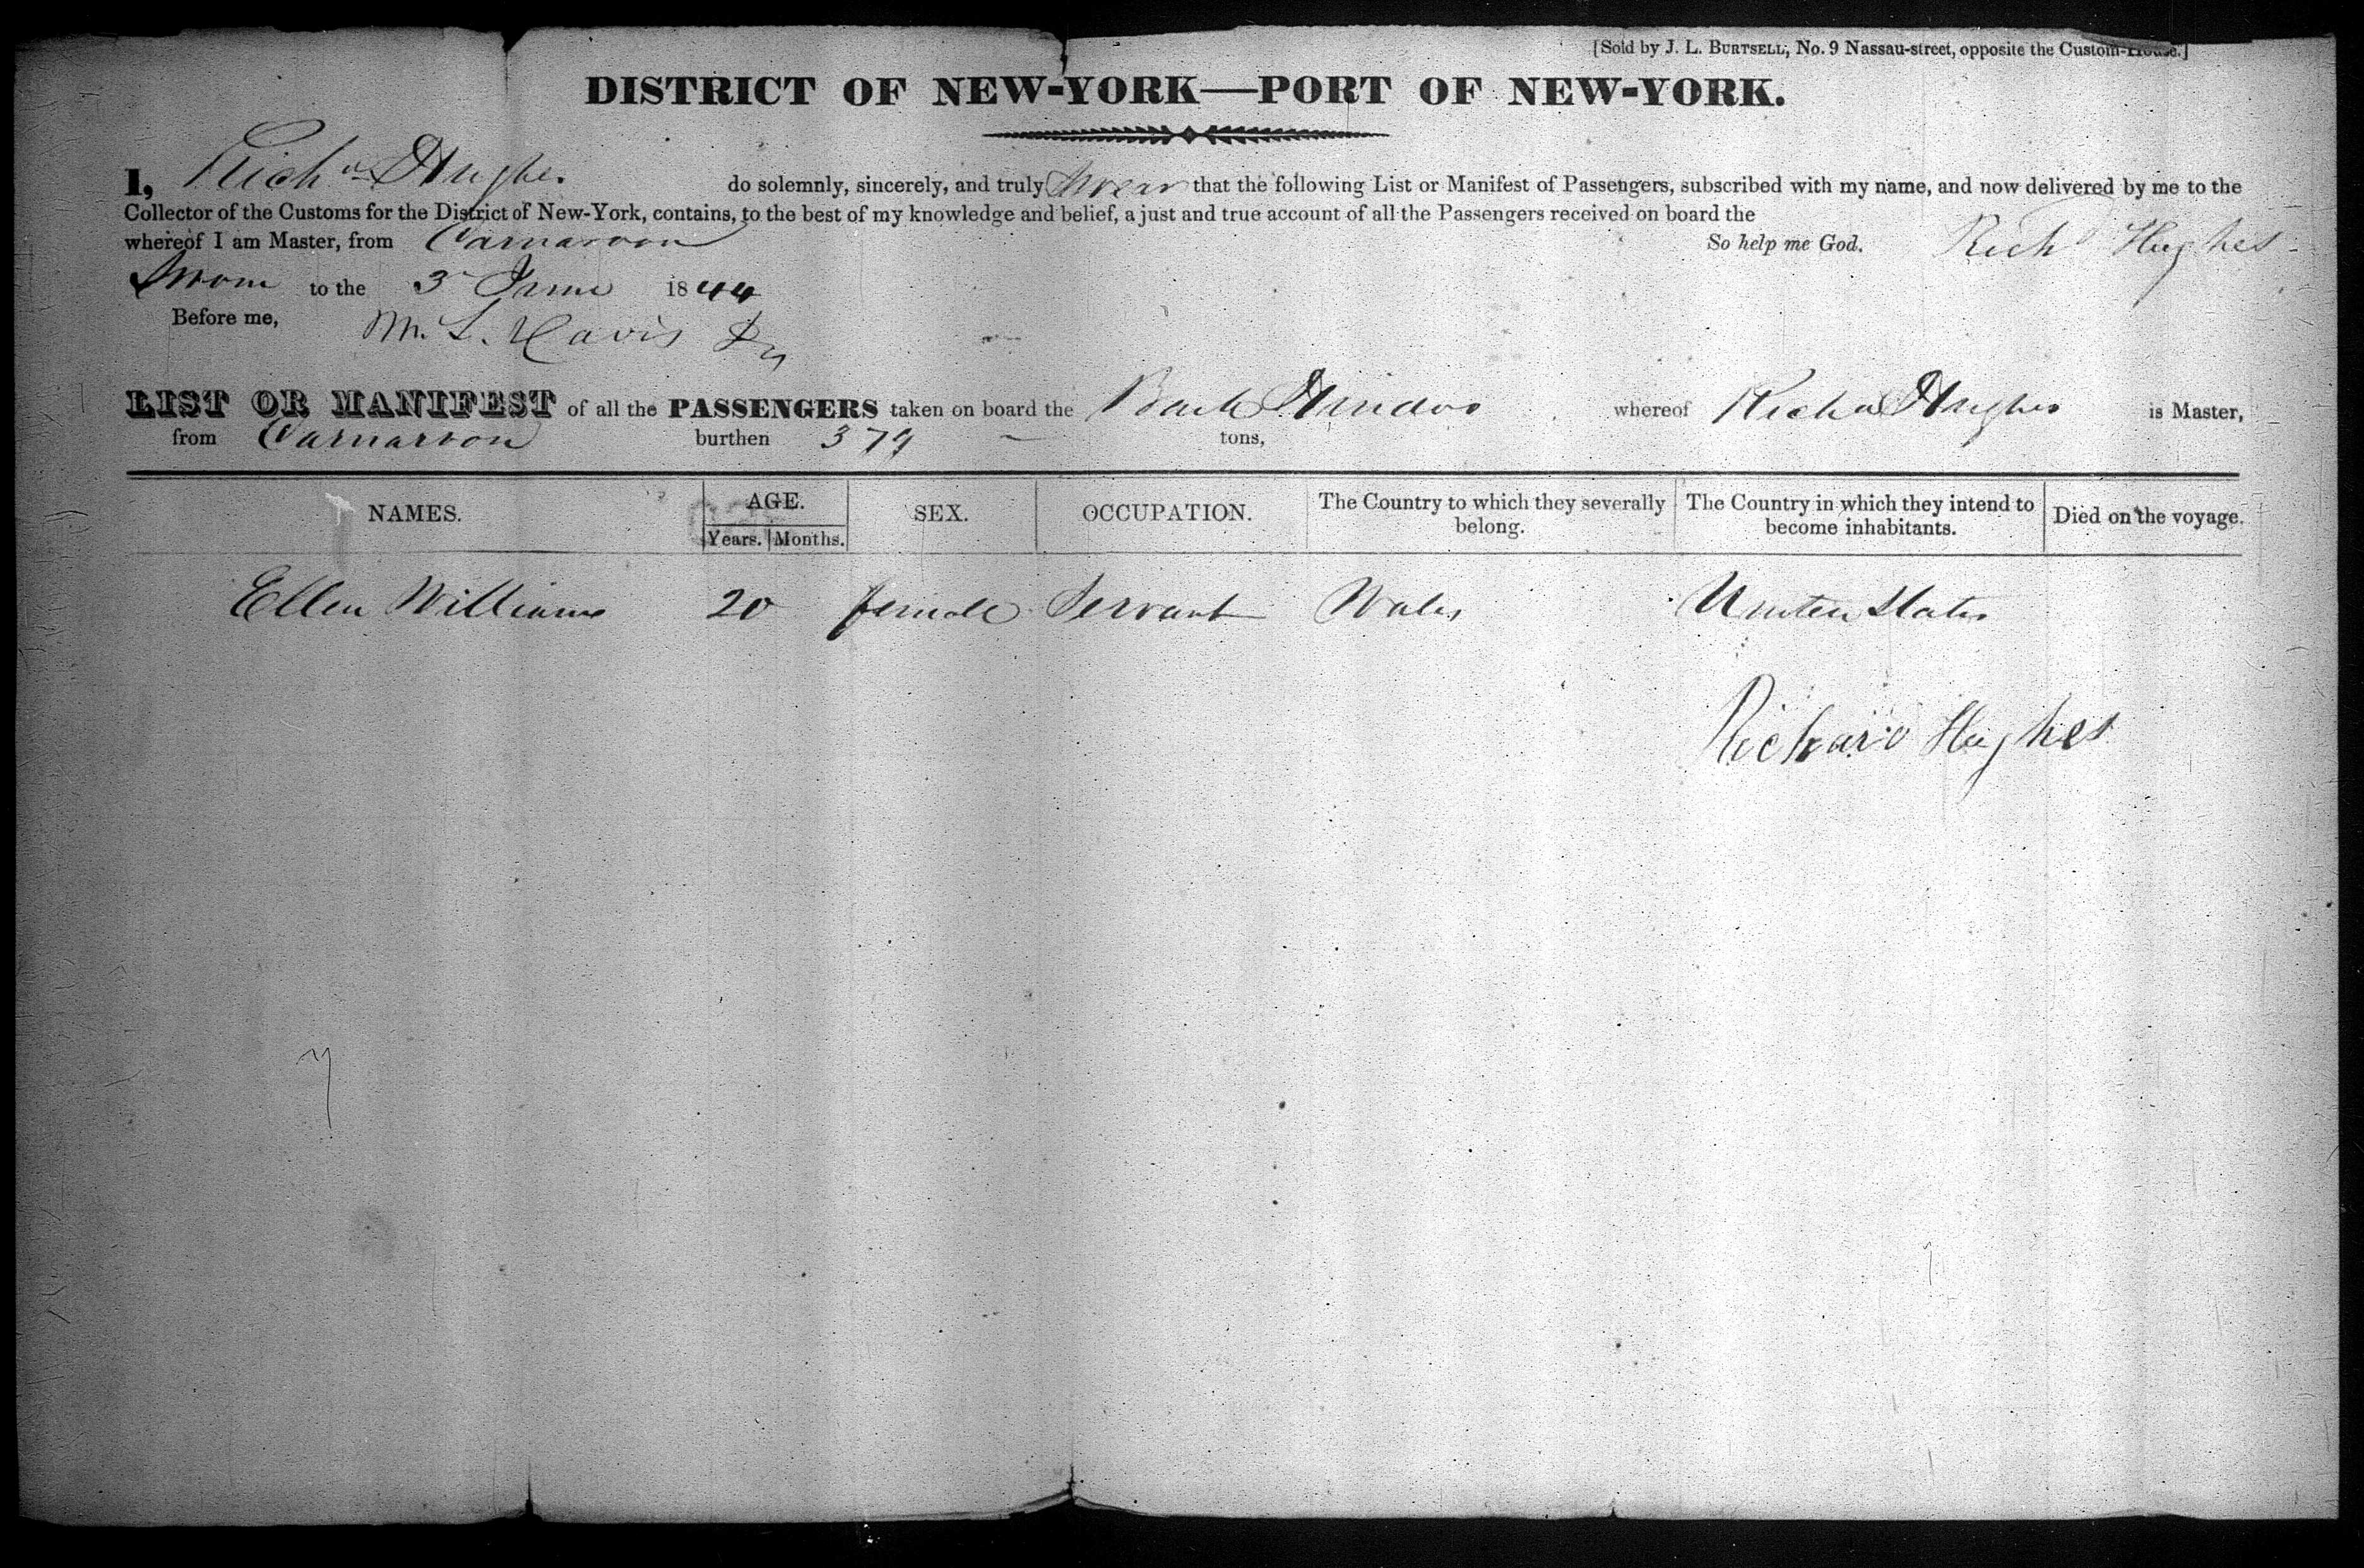 [Sold by J. L. BURTSELL, No. 9 Nassau-street, opposite the Custom-House.]
DISTRICT OF NEW-YORK—PORT OF NEW-YORK.
I, Richd Hughes do solemnly, sincerely, and truly swear that the following List or Manifest of Passengers, subscribed with my name, and now delivered by me to the
Collector of the Customs for the District of New-York, contains, to the best of my knowledge and belief, a just and true account of all the Passengers received on board the
whereof I am Master, from Carnarvon So help me God. Richd Hughes
Sworn to the 3 June 1844
Before me, M. L. Davis
LIST OR MANIFEST of all the PASSENGERS taken on board the Bark Hindoo whereof Richd Hughes is Master,
from Carnarvon burthen 379 tons,
NAMES. AGE. SEX. OCCUPATION. The Country to which they severally belong. The Country in which they intend to become inhabitants. Died on the voyage.
Years. Months.
Ellen Williams 20 female Servant Wales United States
Richard Hughes